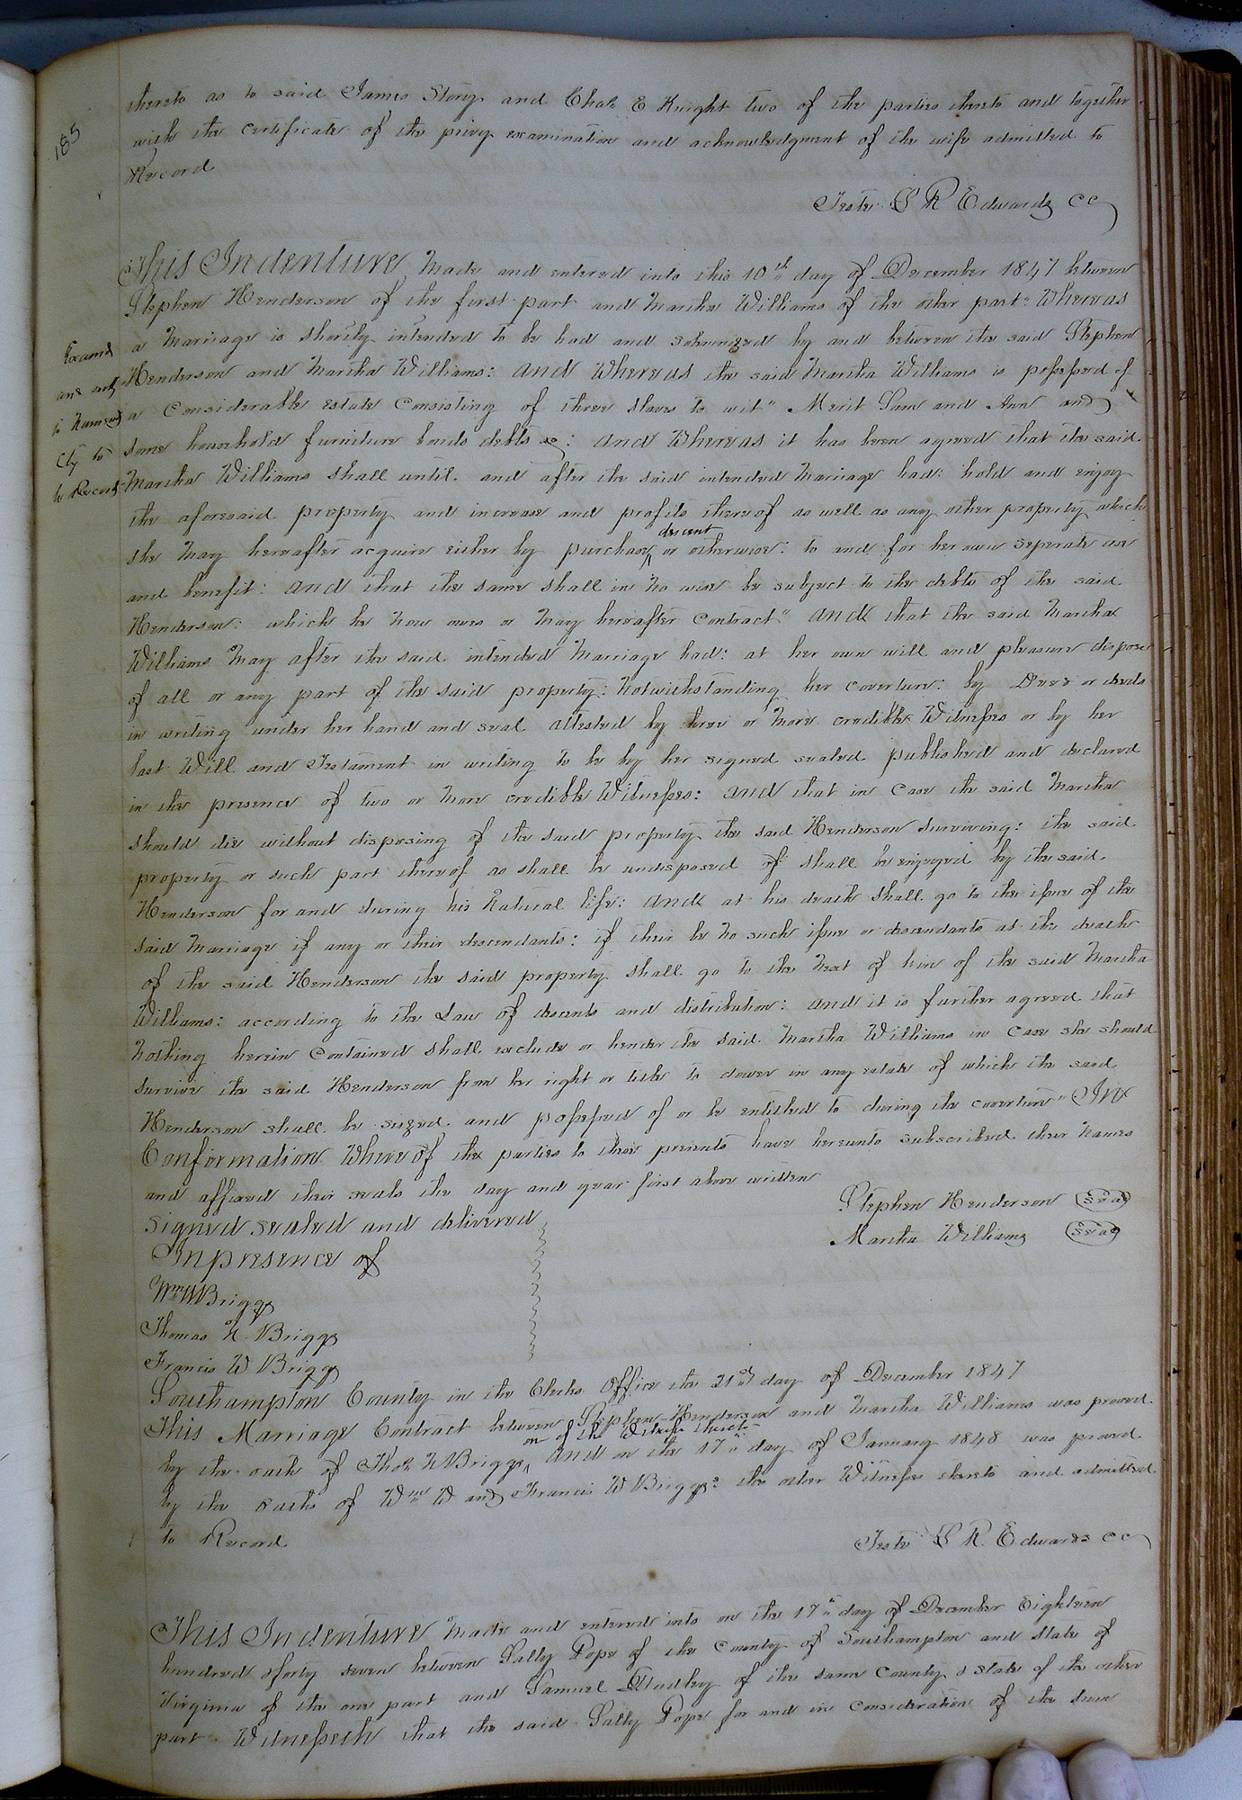 185
thereto as to said James Story and Chas E Knight two of the parties thereto and together
with the certificate of the privy examination and acknowledgment of the wife admitted to
Record
Teste L R Edwards CC
This Indenture Made and entered into this 10th day of December 1847 between
Stephen Henderson of the first part and Martha Williams of the other part: Whereas
a Marriage is shortly intended to be had and solemnized by and between the said Stephen
Henderson and Martha Williams: And Whereas the said Martha Williams is possessed of
a Considerable estate Consisting of three slaves to wit" Merit Sam and Ann and
some household furniture bonds debts &c: And Whereas it has been agreed that the said
Examd
and
to
Cty to
be Record
Martha Williams shall until and after the said intended Marriage had: hold and enjoy
the aforesaid property and increase and profits thereof as well as any other property which
she may hereafter acquire either by purchase descent or otherwise: to and for her own seperate use
and benefit: And that the same shall in no wise be subject to the debts of the said
Henderson: which he now owes or may hereafter Contract" And that the said Martha
Williams May after the said intended Marriage had: at her own will and pleasure dispose
of all or any part of the said property: Notwithstanding her coverture: by Deed or deeds
in writing under her hand and seal attested by three or more credible Witnesses or by her
last Will and Testament in writing to be by her signed sealed published and declared
in the presence of two or more credible Witnesses: And that in Case the said Martha
should die without disposing of the said property the said Henderson surviving: the said
property or such part thereof as shall be undisposed of shall be enjoyed by the said
Henderson for and during his Natural life: And at his death shall go to the issue of the
said Marriage if any or their descendants: if their be no such issue or descendants at the death
of the said Henderson the said property shall go to the Next of kin of the said Martha
Williams: according to the Law of descents and distribution: And it is further agreed that
Nothing herein Contained shall exclude or hender the said Martha Williams in Case she should
survive the said Henderson from her right or title to dower in any estate of which the said
Henderson shall be siezed and possessed of or be entitled to during the coverture" In
Conformation Whereof the parties to these presents have hereunto subscribed their Names
and affixed their seals the day and year first above written
Signed sealed and delivered
In presence of
Wm W Briggs
Thomas N Briggs
Francis W Briggs
Stephen Henderson Seal
Martha Williams Seal
Southampton County in the Clerks Office the 21st day of December 1847
This Marriage Contract between Stephen Henderson and Martha Williams was proved
by the oath of Thos N Briggs one of the Witness thereto And on the 17th day of January 1848 was proved
by the oaths of Wm W and Francis W Briggs: the other Witness thereto and admitted
to Record
Teste L R Edwards CC
This Indenture Made and entered into on the 17th day of December Eighteen
hundred & forty seven between Sally Pope of the County of Southampton and State of
Virginia of the one part and Samuel Studley of the same County & State of the other
part Witnesseth that the said Sally Pope for and in Consideration of the sum